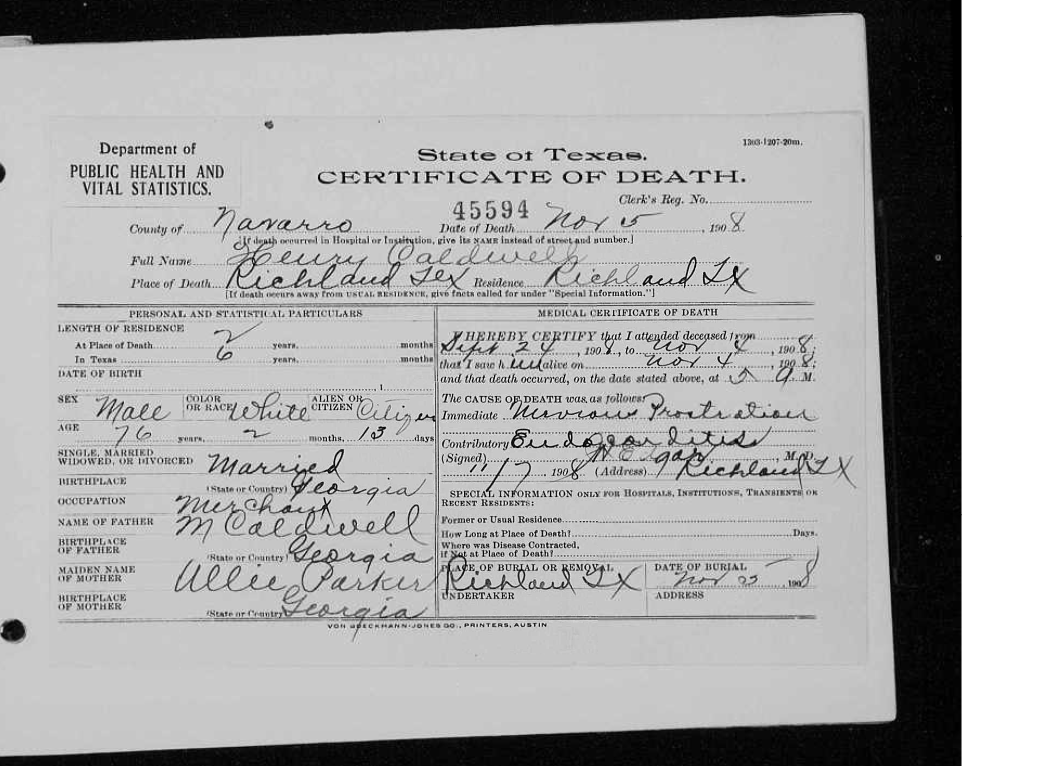 1303-1207-20m.
Department of
PUBLIC HEALTH AND
VITAL STATISTICS.
State of Texas.
CERTIFICATE OF DEATH.
Clerk's Reg. No.
45594
County of Navarro Date of Death Nov 5, 1908
[If death occurred in Hospital or Institution, give its NAME instead of street and number.]
Full Name Henry Caldwell
Place of Death Richland Tex Residence Richland TX
[If death occurs away from USUAL RESIDENCE, give facts called for under "Special Information."]
PERSONAL AND STATISTICAL PARTICULARS
LENGTH OF RESIDENCE
At Place of Death 2 years, months
In Texas 6 years, months
DATE OF BIRTH
, 1
SEX Male COLOR OR RACE White ALIEN OR CITIZEN Citizen
AGE 76 years, 2 months, 13 days
SINGLE, MARRIED
WIDOWED, OR DIVORCED Married
BIRTHPLACE
(State or Country) Georgia
OCCUPATION Merchant
NAME OF FATHER M Caldwell
BIRTHPLACE
OF FATHER
(State or Country) Georgia
MAIDEN NAME
OF MOTHER Allie Parker
BIRTHPLACE
OF MOTHER
(State or Country) Georgia
MEDICAL CERTIFICATE OF DEATH
I HEREBY CERTIFY that I attended deceased from
Sept 24, 1908, to Nov 4, 1908;
that I saw him alive on Nov 4, 1908;
and that death occurred, on the date stated above, at 5 a. M.
The CAUSE OF DEATH was as follows:
Immediate Prostration
Contributory Endocarditis
(Signed) , M. D.
11/7 1908 (Address) Richland TX
SPECIAL INFORMATION ONLY FOR HOSPITALS, INSTITUTIONS, TRANSIENTS OR
RECENT RESIDENTS:
Former or Usual Residence
How Long at Place of Death? Days.
Where was Disease Contracted,
if Not at Place of Death?
PLACE OF BURIAL OR REMOVAL DATE OF BURIAL
Richland TX Nov 1908
UNDERTAKER ADDRESS
VON BOECKMANN-JONES CO., PRINTERS, AUSTIN